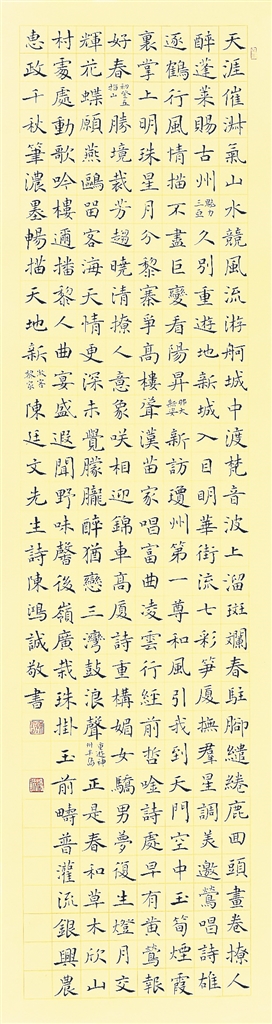 天涯催淋氣山水競風流游舸城中渡梵音波上溜斑斕春駐腳繾綣鹿回頭畫卷撩人
醉蓬萊賜古州魅力三亞久別重遊地新城入目明華街流七彩笋廈撫羣星調美邀鶯唱詩雄
逐鶴行風情描不盡巨變看陽昇那大新姿新訪瓊州第一尊和風引我到天門空中玉筍煙霞
裏掌上明珠星月分黎寨爭高樓聳漢苗家唱富曲凌雲行經前哲唫詩處早有黃鶯報
好春初登五指山勝境裁芳趨曉清撩人意象咲相迎錦車高厦詩重構媚女驕男夢復生燈月交
輝花蝶願燕鷗留客海天情更深未覺朦朧醉猶戀三灣鼓浪聲重遊神州半島正是春和草木欣山
村處處動歌吟樓邇播黎人曲宴盛遐聞野味馨後嶺廣栽珠掛玉前疇普灌流銀興農
惠政千秋筆濃墨暢描天地新做客黎家陳廷文先生詩陳鴻誠敬書